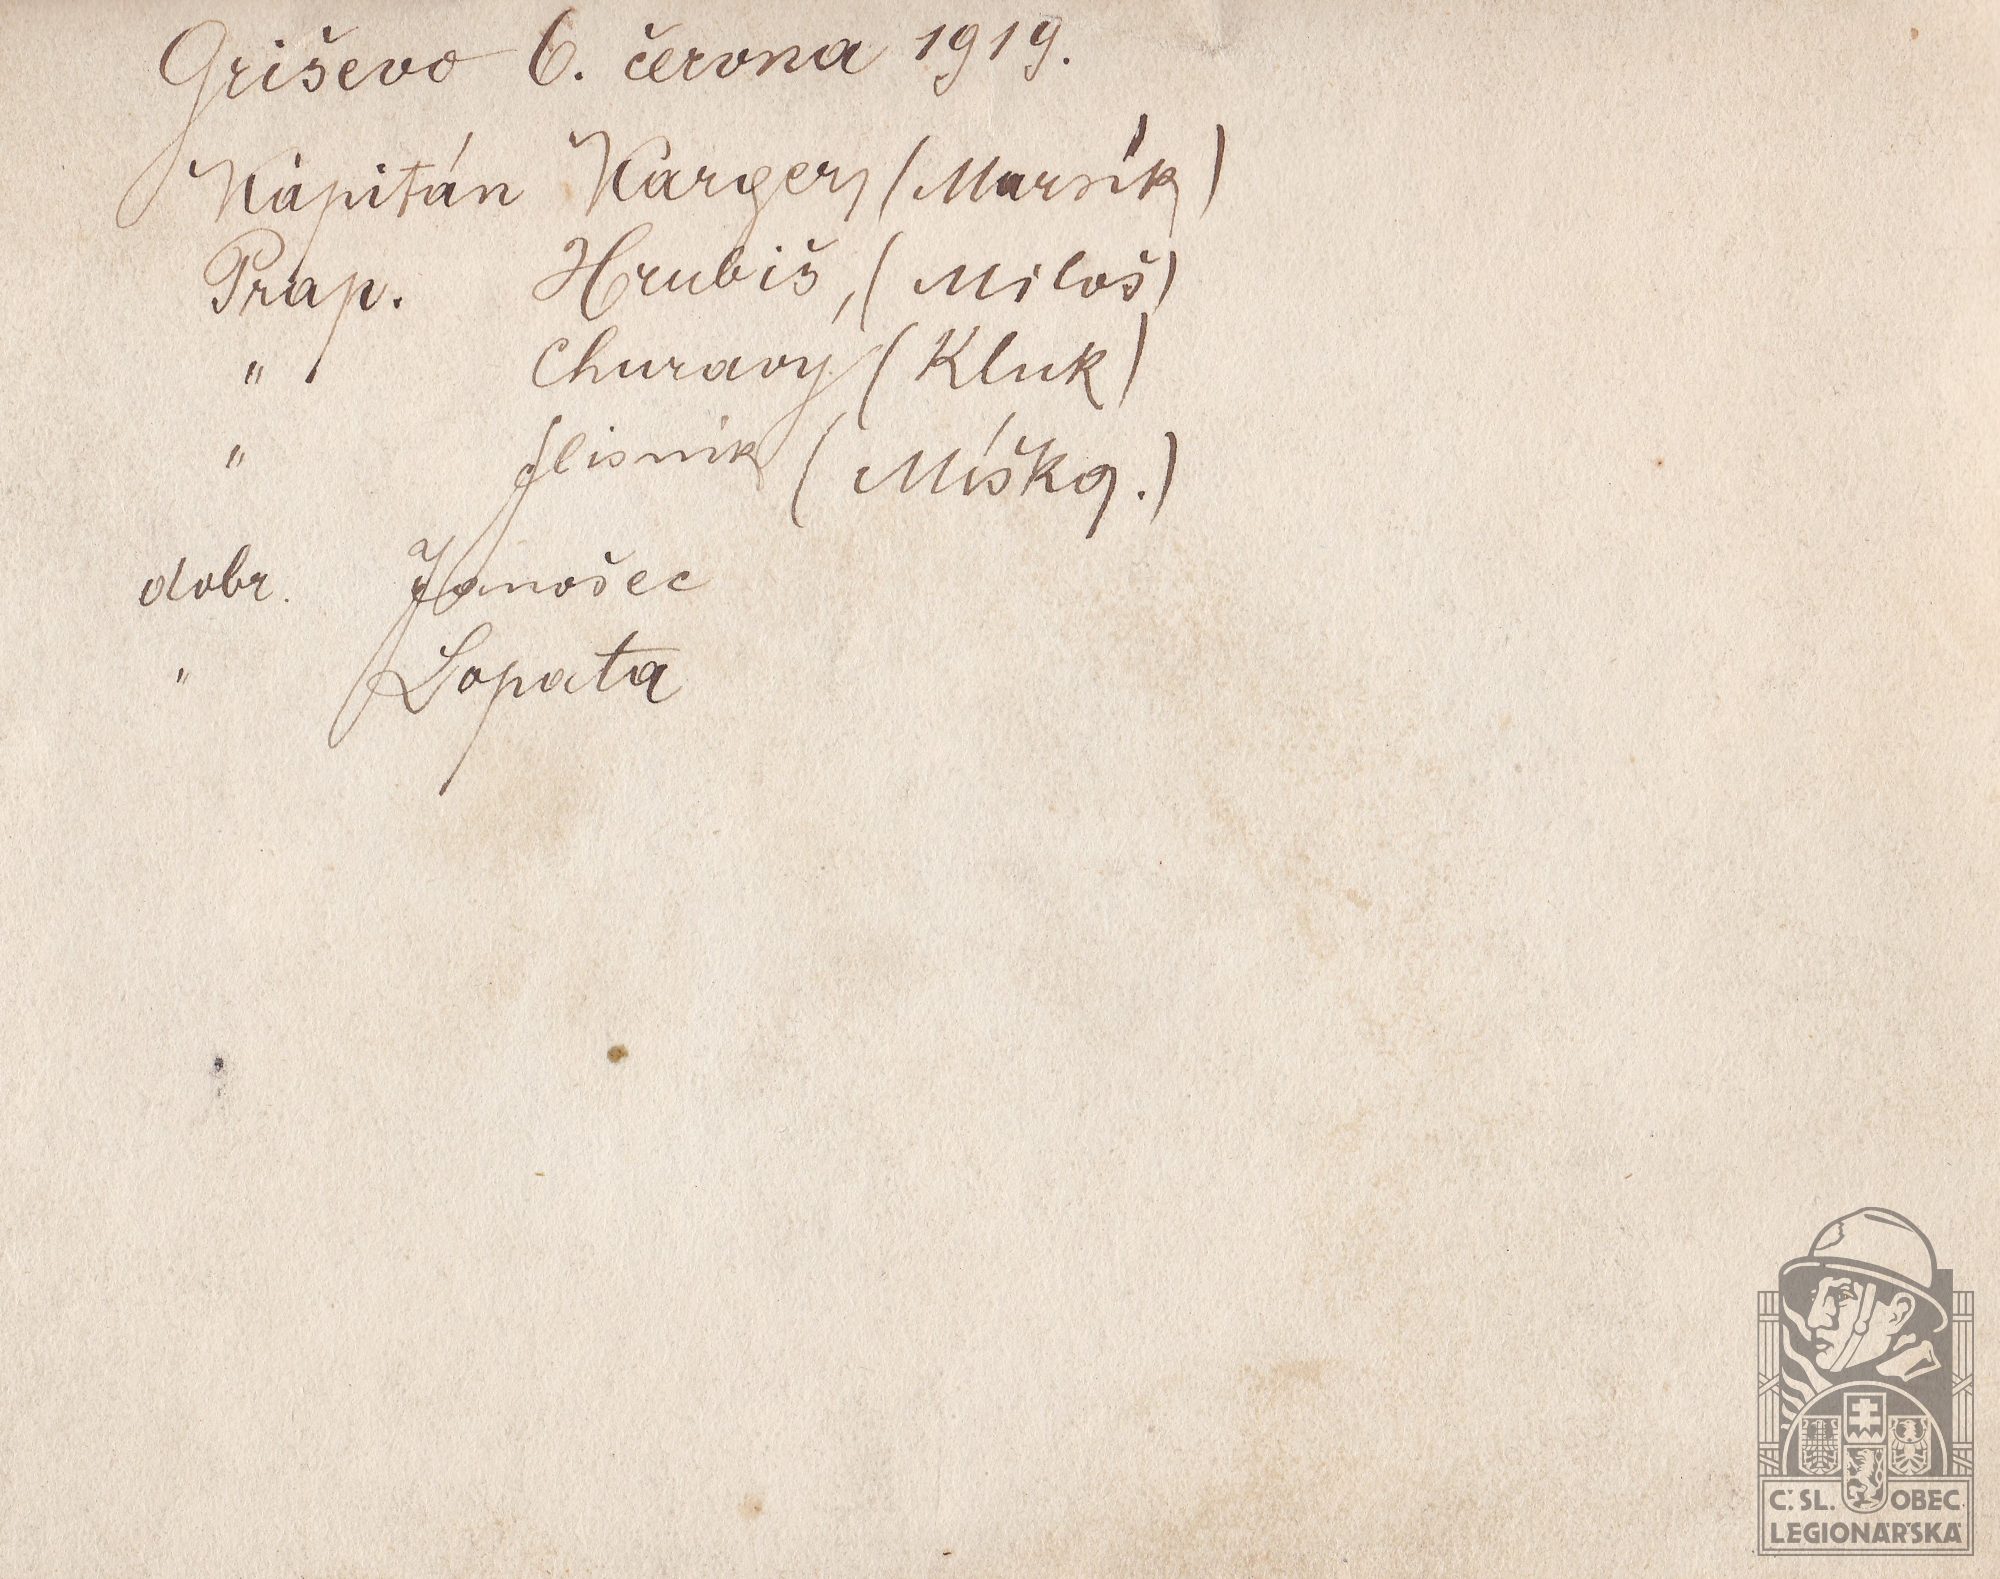 Griševo 6. června 1919.
Kapitán Karger, (Marsík)
Prap. Hrubiš, (Miloš)
" Churavý (Kluk)
" Jlisník (Míška.)
dobr. Janošec
" Lopata
Č.SL. OBEC
LEGIONÁŘSKÁ